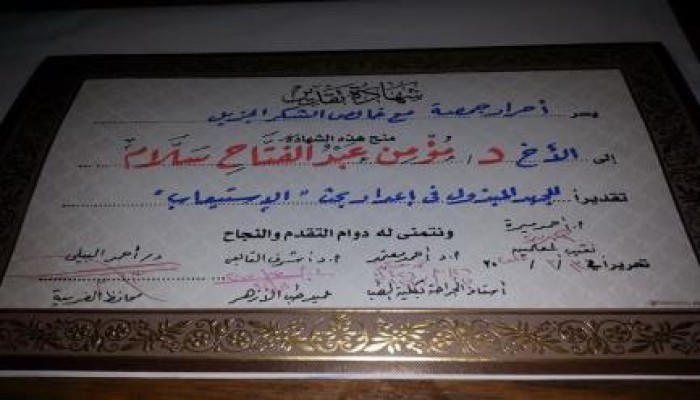 شهادة تقدير
يسر أحرار جمصة مع خالص الشكر الجزيل
منح هذه الشهادة
إلى الأخ د/ مؤمن عبد الفتاح سلام
تقديراً للجهد المبذول فى إعداد بحث "الإستيعاب"
ونتمنى له دوام التقدم والنجاح
أ. أحمد ميرة
نقيب المعلمين
تحريراً فى
أ.د أحمد معتمر
أستاذ الجراحة بكلية الطب
أ.د أشرف
عميد طب الأزهر
د/ أحمد البيلى
محافظ الغربية